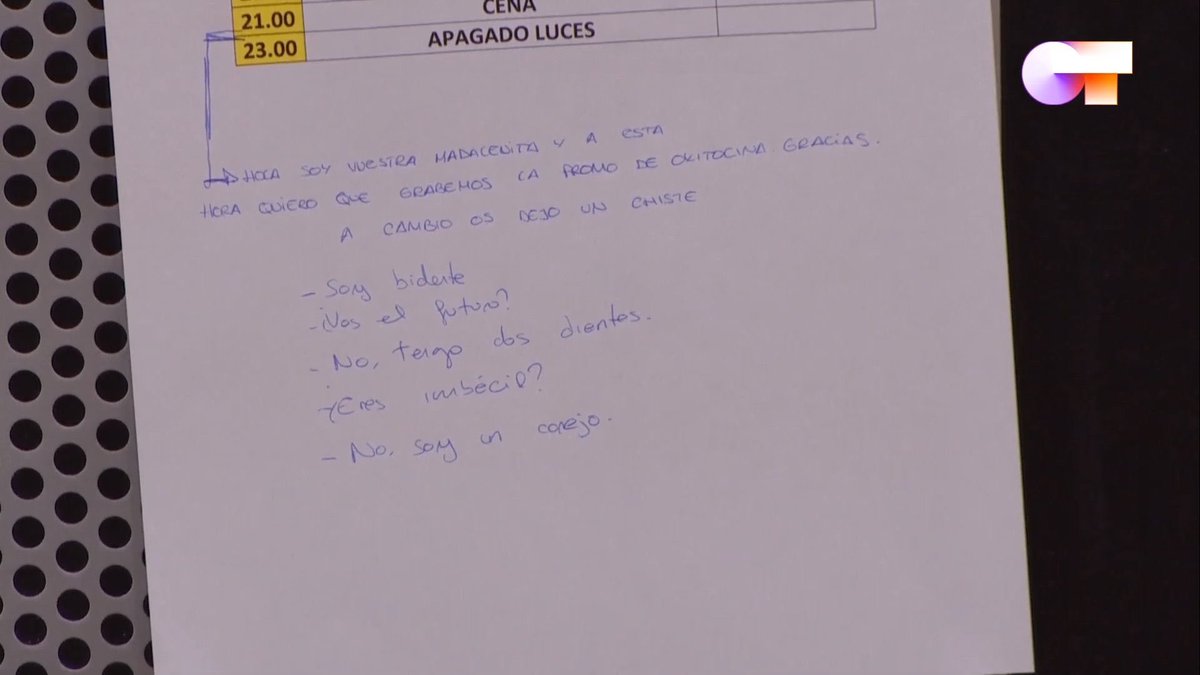 21.00 CENA
23.00 APAGADO LUCES
OT
HOLA SOY VUESTRA MADALENITA Y A ESTA
HORA QUIERO QUE GRABEMOS LA PROMO DE OXITOCINA. GRACIAS.
A CAMBIO OS DEJO UN CHISTE
- Soy bidente
- ¿Ves el futuro?
- No, tengo dos dientes.
- ¿Eres imbécil?
- No, soy un conejo.